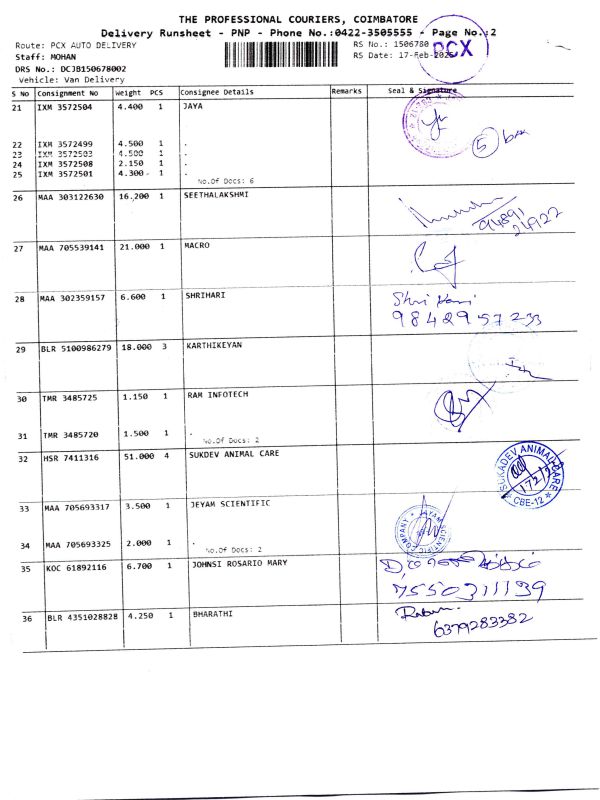 THE PROFESSIONAL COURIERS, COIMBATORE
Delivery Runsheet - PNP - Phone No.:0422-3505555 - Page No.:2
Route: PCX AUTO DELIVERY RS No.: 1506780
PCX
Staff: MOHAN RS Date: 17-Feb-2025
DRS No.: DCJB150678002
Vehicle: Van Delivery
S No Consignment No Weight PCS Consignee Details Remarks Seal & Signature
21 IXM 3572504 4.400 1 JAYA
5 box
22 IXM 3572499 4.500 1 .
23 IXM 3572503 4.500 1 .
24 IXM 3572508 2.150 1 .
25 IXM 3572501 4.300 1 .
No.Of Docs: 6
26 MAA 303122630 16.200 1 SEETHALAKSHMI
94891
24922
27 MAA 705539141 21.000 1 MACRO
28 MAA 302359157 6.600 1 SHRIHARI
Shri Hari
9842957233
29 BLR 5100986279 18.000 3 KARTHIKEYAN
30 TMR 3485725 1.150 1 RAM INFOTECH
31 TMR 3485720 1.500 1 .
No.Of Docs: 2
32 HSR 7411316 51.000 4 SUKDEV ANIMAL CARE
SUKADEV ANIMAL CARE
CBE-12
33 MAA 705693317 3.500 1 JEYAM SCIENTIFIC
JEYAM SCIENTIFIC COMPANY
34 MAA 705693325 2.000 1 .
No.Of Docs: 2
35 KOC 61892116 6.700 1 JOHNSI ROSARIO MARY
7550311139
36 BLR 4351028828 4.250 1 BHARATHI
6379283382